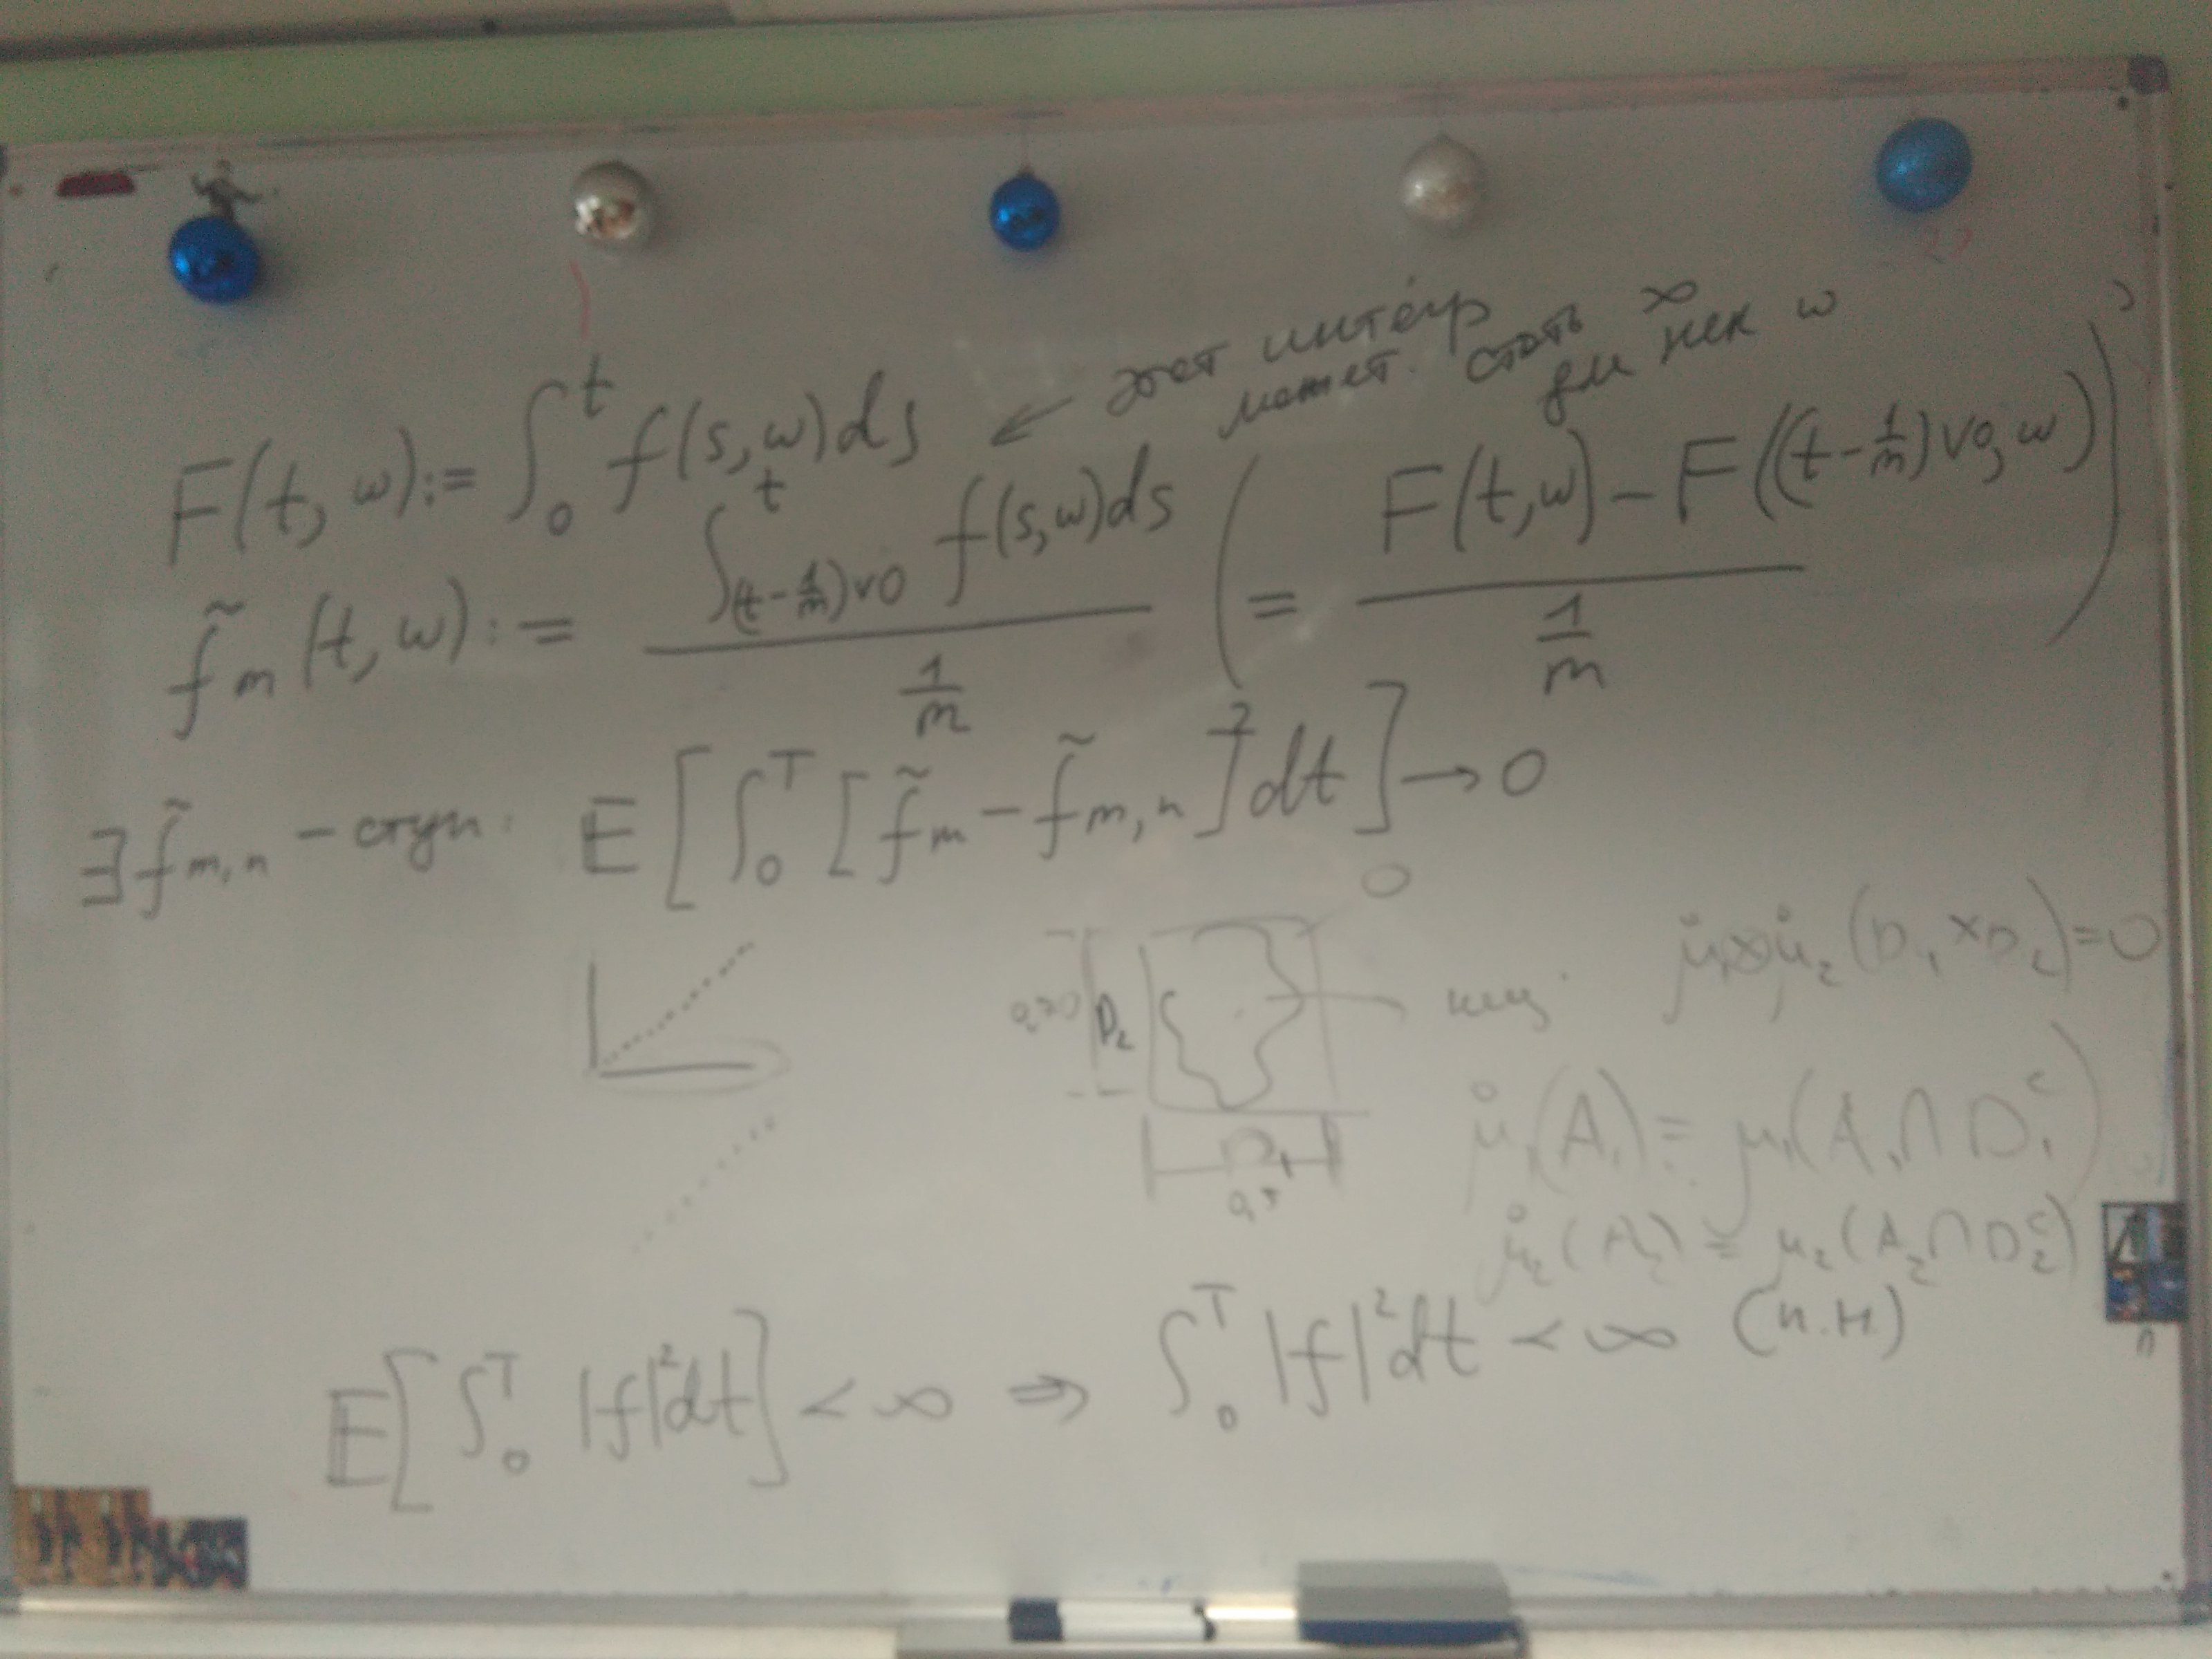 F(t, ω) := ∫₀ᵗ f(s, ω) ds ← этот интегр
может. стать ∞
для нек ω
f̃ₘ(t, ω) := ∫_{(t-1/m)∨0}^t f(s, ω) ds / (1/m) ( = (F(t, ω) - F((t-1/m)∨0, ω)) / (1/m) )
∃ f̃ₘ,ₙ - ступ: E[∫₀ᵀ [f̃ₘ - f̃ₘ,ₙ]² dt] → 0
0
D₂
D₁
μ̊₁⊗μ̊₂(D₁ × D₂) = 0
μ̊₁(A₁) = μ₁(A₁ ∩ D₁ᶜ)
μ̊₂(A₂) = μ₂(A₂ ∩ D₂ᶜ)
E[∫₀ᵀ |f|² dt] < ∞ ⇒ ∫₀ᵀ |f|² dt < ∞ (п.н.)